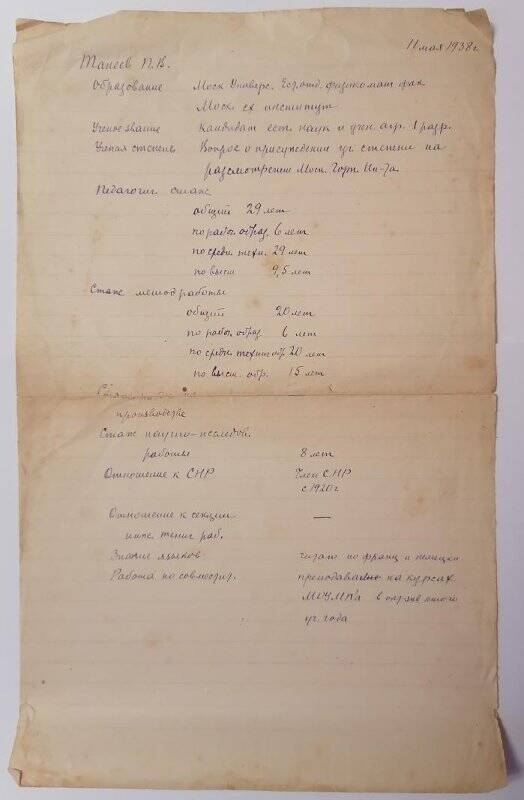 11 мая 1938 г.
Танеев П.В.
Образование Моск Универс. Ест. отд. физикомат. фак
Моск. сх институт
Ученое звание Кандидат ест. наук и учен. агр. 1 разр.
Ученая степень Вопрос о присуждении уч степени на
рассмотрении Моск. Горн. Ин-та
Педагогич стаж
общий 29 лет
по рабоч. образ. 6 лет
по средн. техн. 29 лет
по высш 9,5 лет
Стаж метод работы
общий 20 лет
по рабоч. образ. 6 лет
по средн. техн обр 20 лет
по высш. обр. 15 лет
Стаж на —
производстве
Стаж научно-исследов.
работы 8 лет
Отношение к СНР Член СНР
с 1920 г
Отношение к секции —
инж. технич раб.
Знание языков читаю по франц и немецки
Работа по совместит. преподавание на курсах
в
уч. года